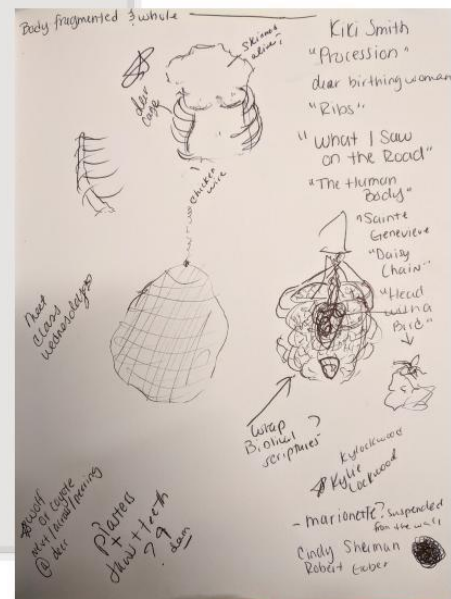 Body fragmented & whole
Kiki Smith
"Procession"
dear birthing woman
"Ribs"
"What I Saw
on the Road"
"The Human
Body"
"Sainte
Genevieve
"Daisy
Chain"
"Head
with a
Bird"
skinned
alive;
deer
cage
chicken
wire
next
class
wednesday
wrap
Biblical ?
scriptures
Kylockwood
Kylie
Lockwood
- marionette? suspended
from the wall
Cindy Sherman
Robert Gober
wolf
or coyote
@ deer
plasters
jaw + teeth
??